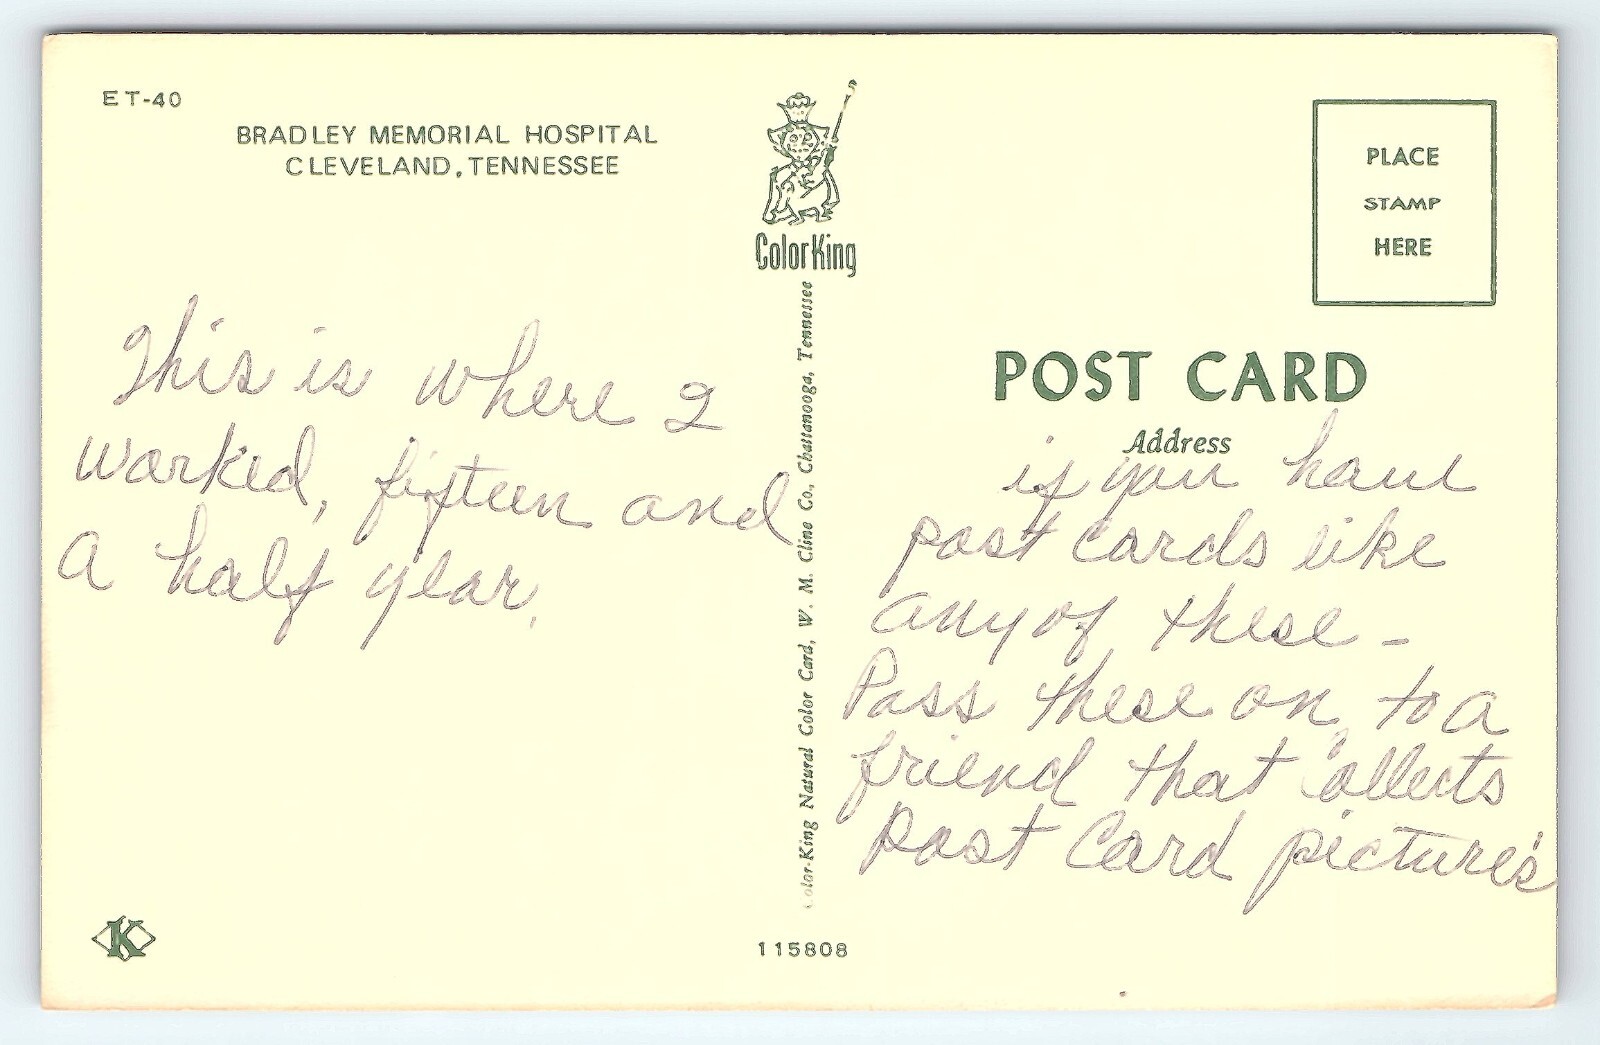 ET-40
BRADLEY MEMORIAL HOSPITAL
CLEVELAND, TENNESSEE
This is where I
worked, fifteen and
a half year.
ColorKing
Color-King Natural Color Card, W. M. Cline Co., Chattanooga, Tennessee
PLACE
STAMP
HERE
POST CARD
Address
if you have
post cards like
any of these –
Pass these on, to a
friend that collects
Post Card picture's
K
115808